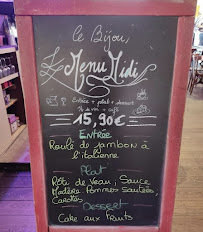 Le Bijou,
Le Menu Midi
Entrée + plat + dessert
¼ de vin + café
15,90€
Entrée
Roulé de jambon à
l'italienne
Plat
Rôti de Veau, Sauce
Madère Pommes Sautées,
Carottes
Dessert
Cake aux Fruits